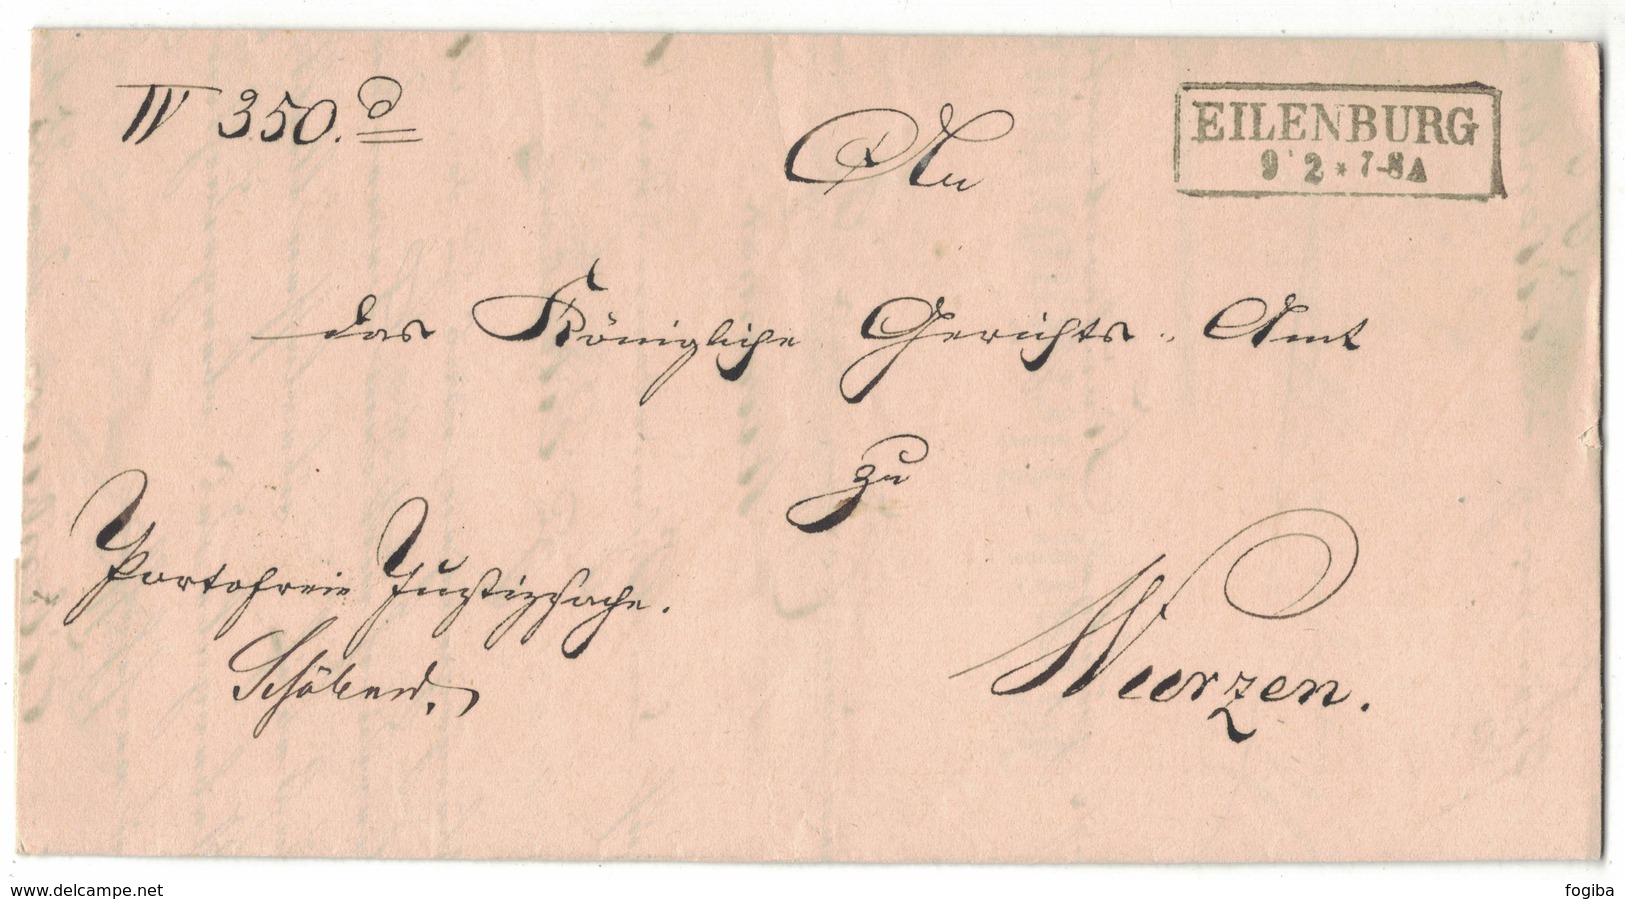 IV 350. d
An
EILENBURG
9 2 * 7-8 A
das Königliche Gerichts-Amt
zu
Portofreie Justizsache.
Wurzen.
www.delcampe.net
fogiba